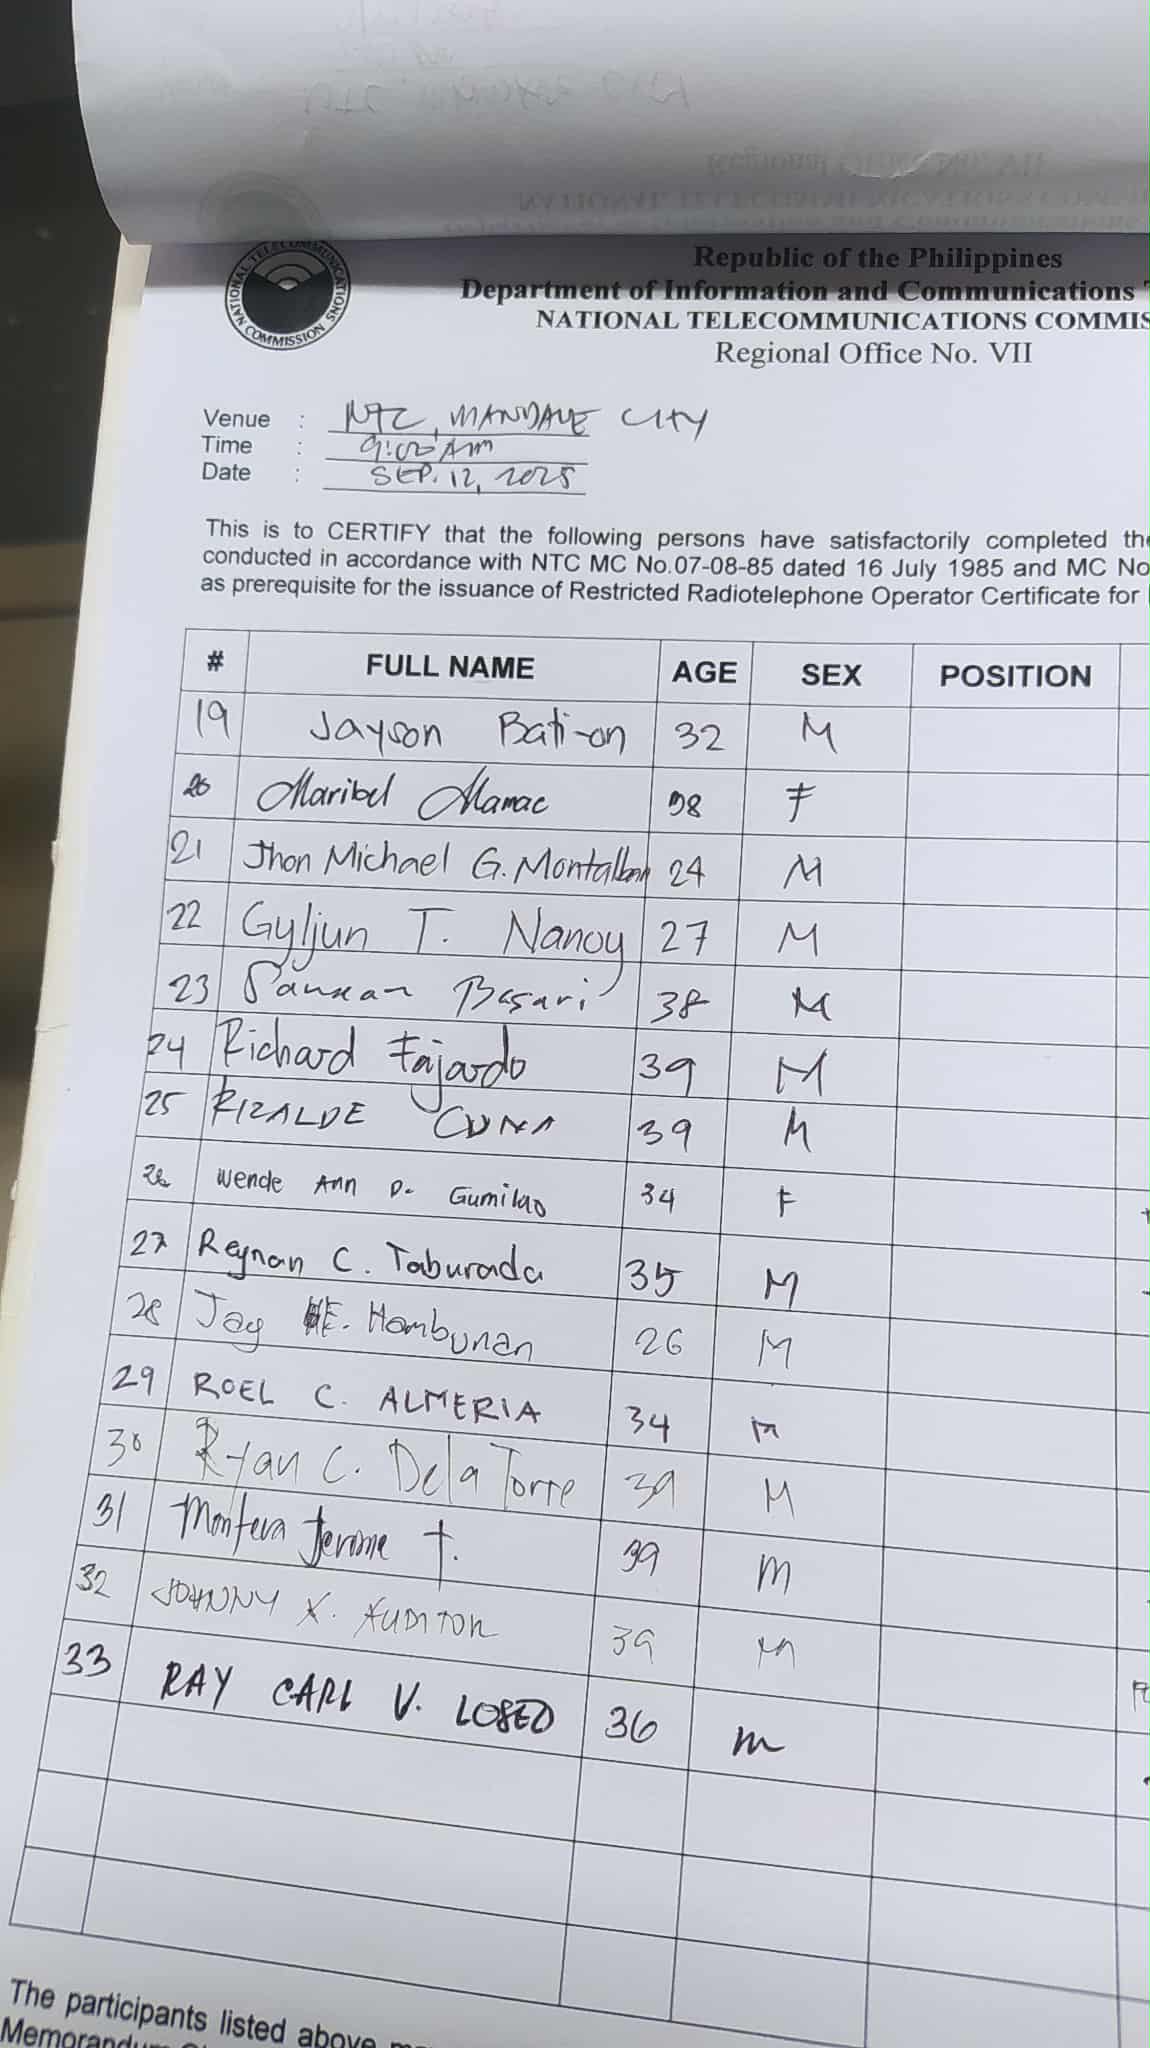 NATIONAL TELECOMMUNICATIONS COMMISSION
Republic of the Philippines
Department of Information and Communications
NATIONAL TELECOMMUNICATIONS COMMIS
Regional Office No. VII
Venue : NTC, MANDAUE CITY
Time : 9:00 AM
Date : SEP. 12, 2025
This is to CERTIFY that the following persons have satisfactorily completed the
conducted in accordance with NTC MC No.07-08-85 dated 16 July 1985 and MC No
as prerequisite for the issuance of Restricted Radiotelephone Operator Certificate for
# FULL NAME AGE SEX POSITION
19 Jayson Bati-on 32 M
20 Maribel Mamac 38 F
21 Jhon Michael G. Montalban 24 M
22 Gyljun T. Nanoy 27 M
23 Basari 38 M
24 Richard Fajardo 39 M
25 RIZALDE CUNA 39 M
26 Wende Ann D. Gumilao 34 F
27 Reynan C. Taburada 35 M
28 Jay E. Hambunan 26 M
29 ROEL C. ALMERIA 34 M
30 Ryan C. Dela Torre 39 M
31 Jerome T. 39 M
32 JOHNNY X. AUDITOR 39 M
33 RAY CARL V. LOSED 36 M
The participants listed above